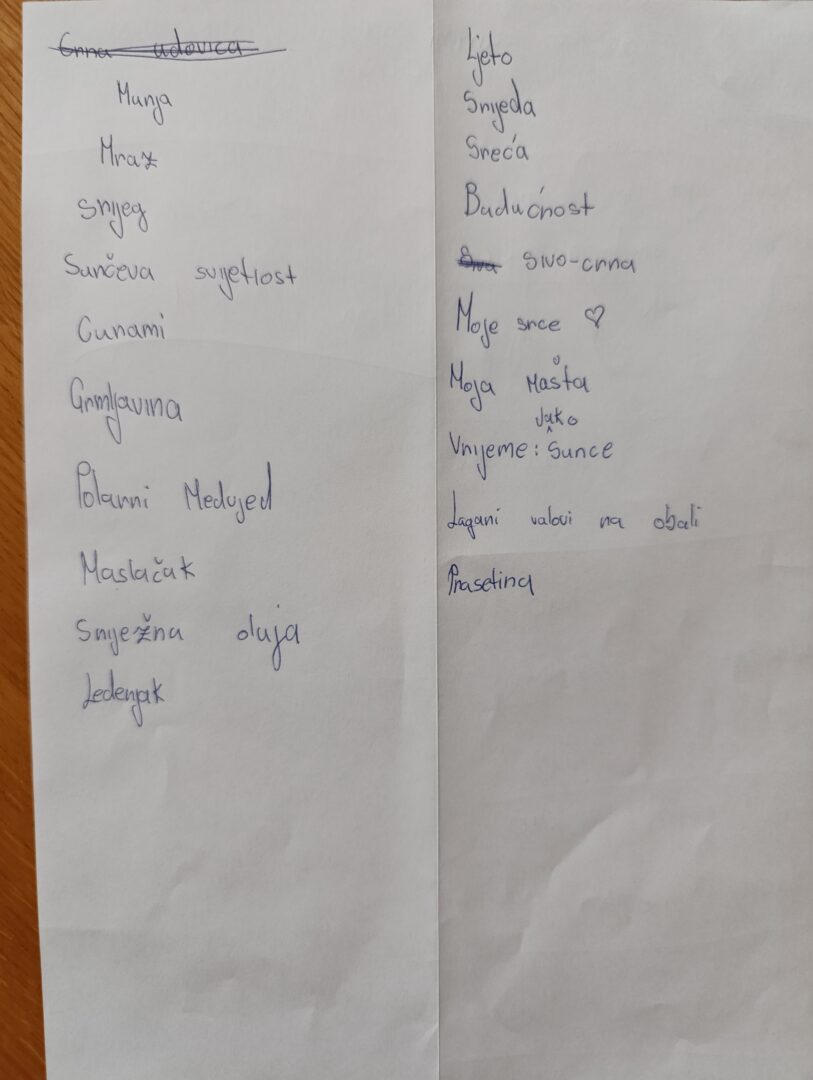 Crna udovica
Munja
Mraz
Snijeg
Sunčeva svijetlost
Cunami
Grmljavina
Polarni Medvjed
Maslačak
Snježna oluja
Ledenjak
Ljeto
Smjeđa
Sreća
Budućnost
Siva Sivo-crna
Moje srce ♡
Moja Mašta
Vrijeme: jako Sunce
Lagani valovi na obali
Prasetina